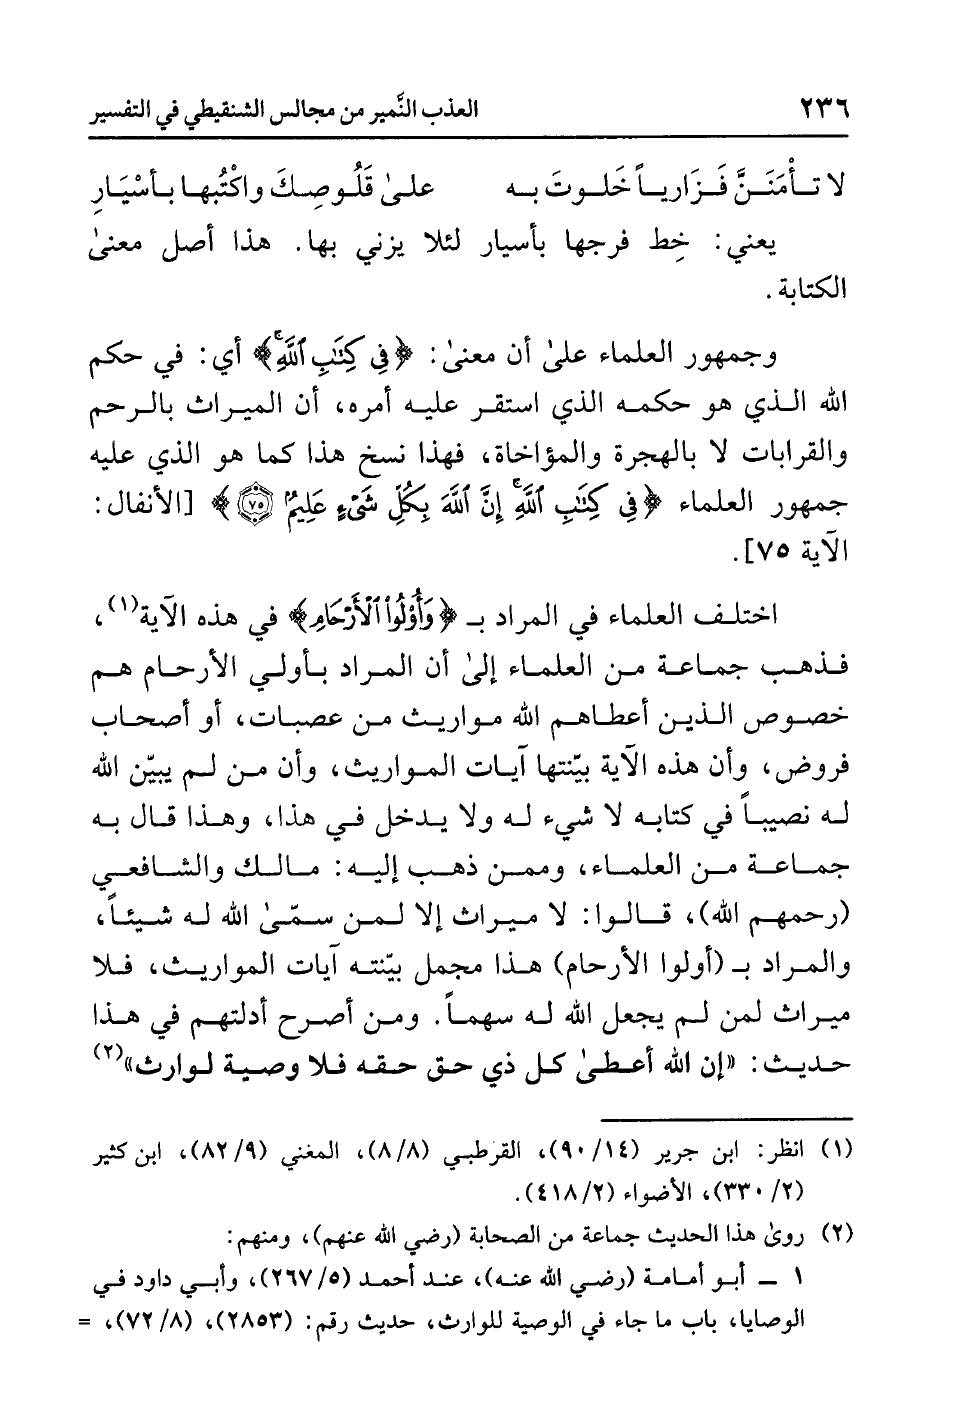 ٢٣٦ العذب النَّمير من مجالس الشنقيطي في التفسير
لا تـأمَنَـنَّ فَـزَاريـاً خَلـوتَ بـه علىٰ قَلُـوصِـكَ واكْتُبهـا بـأسْيَـارِ
يعني: خِط فرجها بأسيار لئلا يزني بها. هذا أصل معنىٰ
الكتابة.
وجمهور العلماء علىٰ أن معنىٰ: ﴿فِي كِتَٰبِ ٱللَّهِۚ﴾ أي: في حكم
الله الـذي هو حكمـه الذي استقـر عليـه أمره، أن الميـراث بالـرحم
والقرابات لا بالهجرة والمؤاخاة، فهذا نسخ هذا كما هو الذي عليه
جمهور العلماء ﴿فِي كِتَٰبِ ٱللَّهِۚ إِنَّ ٱللَّهَ بِكُلِّ شَيْءٍ عَلِيمٌ ۝٧٥﴾ [الأنفال:
الآية ٧٥].
اختلـف العلماء في المراد بـ ﴿وَأُوْلُواْ ٱلْأَرْحَامِ﴾ في هذه الآية(١)،
فـذهـب جمـاعـة مـن العلمـاء إلىٰ أن المـراد بـأولـي الأرحـام هـم
خصـوص الـذيـن أعطـاهـم الله مـواريـث مـن عصبـات، أو أصحـاب
فروض، وأن هذه الآية بيّنتها آيات المـواريـث، وأن مـن لـم يبيّن الله
لـه نصيبـاً في كتابـه لا شيء لـه ولا يـدخـل فـي هـذا، وهـذا قـال بـه
جمـاعـة مـن العلمـاء، وممـن ذهـب إليـه: مـالـك والشـافعـي
(رحمهـم الله)، قـالـوا: لا ميـراث إلا لمـن سـمّـىٰ الله لـه شـيئـاً،
والمـراد بـ (أولوا الأرحام) هـذا مجمل بيّنتـه آيات المواريـث، فـلا
ميـراث لمن لـم يجعل الله لـه سهمـاً. ومـن أصـرح أدلتهـم في هـذا
حـديـث: «إن الله أعطـىٰ كـل ذي حـق حقـه فـلا وصيـة لـوارث»(٢)
(١) انظر: ابن جرير (١٤/ ٩٠)، القرطبـي (٨/٨)، المغني (٩/ ٨٢)، ابن كثير
(٢/ ٣٣٠)، الأضواء (٢/ ٤١٨).
(٢) روىٰ هذا الحديث جماعة من الصحابة (رضي الله عنهم)، ومنهم:
١ ـ أبـو أمامـة (رضي الله عنـه)، عنـد أحمـد (٥/ ٢٦٧)، وأبـي داود فـي
الوصايا، باب ما جاء في الوصية للوارث، حديث رقم: (٢٨٥٣)، (٨/ ٧٢)، =